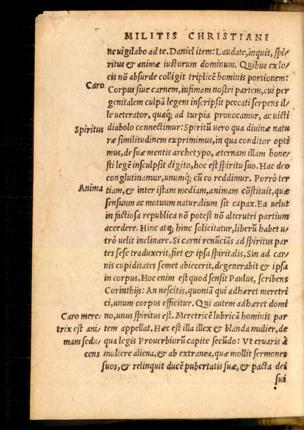 MILITIS CHRISTIANI
ne uigilabo ad te. Daniel item: Laudate, inquit, spi-
ritus & animæ iustorum dominum. Quibus ex lo-
cis nō absurde colligit triplicē hominis portionem:
Caro
Corpus siue carnem, infimam nostri partem, cui per
genitalem culpā legem inscripsit peccati serpens il-
le ueterator, quaq; ad turpia prouocamur, ac uicti
Spiritus
diabolo connectimur: Spiritū uero qua diuinæ natu
ræ similitudinem exprimimus, in qua conditor opti
mus, de suæ mentis archetypo, æternam illam hone-
sti legē insculpsit digito, hoc est spiritu suo. Hac deo
conglutinamur, unumq; cū eo reddimur. Porrò ter
Anima
tiam, & inter istam mediam, animam cōstituit, quæ
sensuum ac motuum naturalium sit capax. Ea uelut
in factiosa republica nō potest nō alterutri partium
accedere. Hinc atq; hinc solicitatur, liberū habet u-
trò uelit inclinare. Si carni renūcians ad spiritus par
tes sese traduxerit, fiet & ipsa spiritalis, Sin ad car-
nis cupiditates semet abiecerit, degenerabit & ipsa
in corpus. Hoc enim est quod sensit Paulus, scribens
Corinthijs: An nescitis, quoniā qui adhæret meretri
ci, unum corpus efficitur. Qui autem adhæret domi
Caro mere
trix est ani
mam sedu-
cens
no, unus spiritus est. Meretricē lubricā hominis par
tem appellat. Hæc est illa illex & blanda mulier, de
qua legis Prouerbiorū capite secūdo: Vt eruaris à
muliere aliena, & ab extranea, quæ mollit sermones
suos, & relinquit ducē pubertatis suæ, & pacta dei
sui